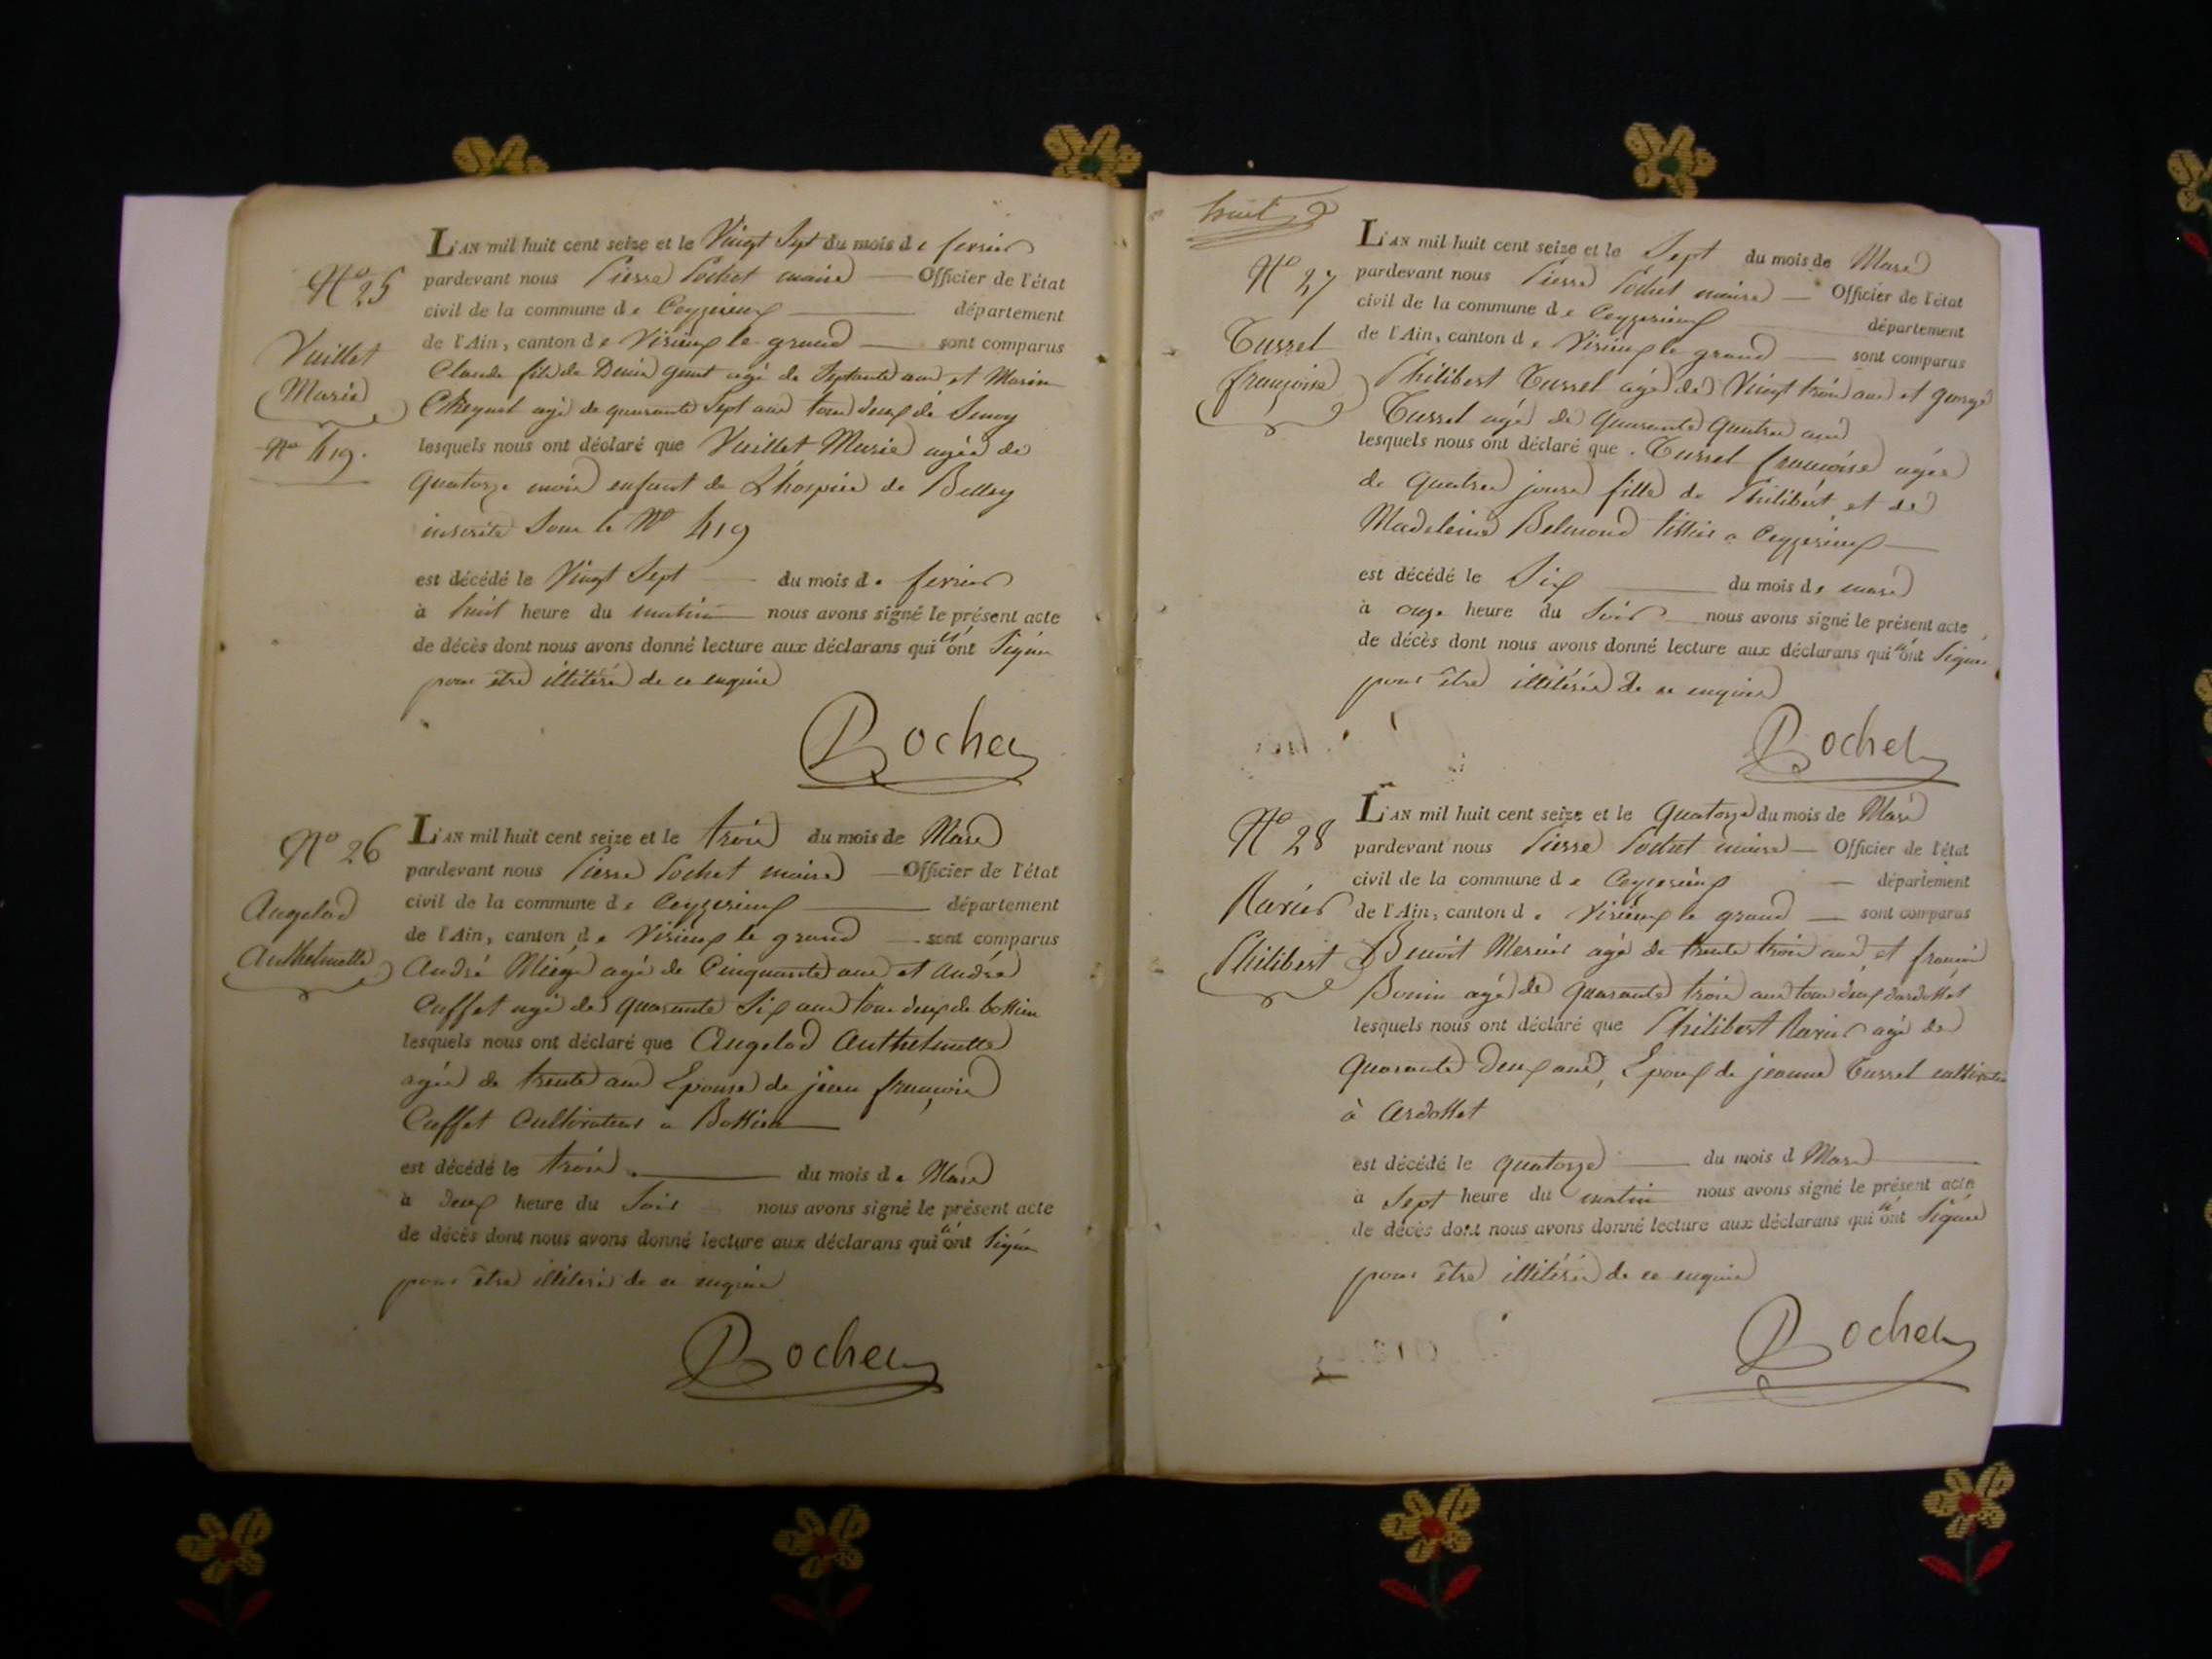 N° 25
Vuillet
Marie
N° 419.
L'AN mil huit cent seize et le Vingt Sept du mois de fevrier
pardevant nous Pierre Pochet maire Officier de l'état
civil de la commune de Ceyzerieux département
de l'Ain, canton de Virieux le grand sont comparus
Claude fils de Denis agé de Septante ans et Marin
agé de quarante Sept ans tous deux de
lesquels nous ont déclaré que Vuillet Marie agée de
quatorze mois enfant de L'hospice de Belley
inscrite Sous le N° 419
est décédé le Vingt Sept du mois de fevrier
à huit heure du matin nous avons signé le présent acte
de décès dont nous avons donné lecture aux déclarans qui n'ont Signé
pour être illitérés de ce enquis
Pochet
N° 26
Angelod
Anthelmette
L'AN mil huit cent seize et le trois du mois de Mars
pardevant nous Pierre Pochet maire Officier de l'état
civil de la commune de Ceyzerieux département
de l'Ain, canton de Virieux le grand sont comparus
André Miege agé de Cinquante ans et André
Cuffet agé de quarante Six ans tous deux de
lesquels nous ont déclaré que Angelod Anthelmette
agée de trente ans Epouse de jean françois
Cuffet Cultivateur a
est décédé le trois du mois de Mars
à deux heure du Soir nous avons signé le présent acte
de décès dont nous avons donné lecture aux déclarans qui n'ont Signé
pour être illitérés de ce enquis
Pochet
huit
N° 27
Cursset
françoise
L'AN mil huit cent seize et le Sept du mois de Mars
pardevant nous Pierre Pochet maire Officier de l'état
civil de la commune de Ceyzerieux département
de l'Ain, canton de Virieux le grand sont comparus
Philibert Cursset agé de Vingt trois ans et george
Cursset agé de quarante quatre ans
lesquels nous ont déclaré que Cursset françoise agée
de quatre jours fille de Philibert et de
Madeleine Belmond a Ceyzerieux
est décédé le Six du mois de mars
à onze heure du Soir nous avons signé le présent acte
de décès dont nous avons donné lecture aux déclarans qui n'ont Signé
pour être illitérés de ce enquis
Pochet
N° 28
Ravier
Philibert
L'AN mil huit cent seize et le quatorze du mois de Mars
pardevant nous Pierre Pochet maire Officier de l'état
civil de la commune de Ceyzerieux département
de l'Ain, canton de Virieux le grand sont comparus
Benoit Mercier agé de trente trois ans et françois
Bonin agé de quarante trois ans tous deux dardosset
lesquels nous ont déclaré que Philibert Ravier agé de
quarante deux ans, Epoux de jeanne Cursset cultivateur
à Ardosset
est décédé le quatorze du mois d Mars
à Sept heure du matin nous avons signé le présent acte
de décès dont nous avons donné lecture aux déclarans qui n'ont Signé
pour être illitérés de ce enquis
Pochet